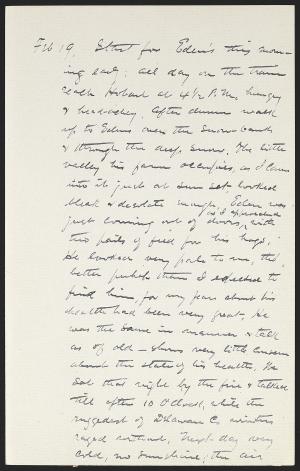 Feb 19. Start for Eden's this morn-
ing early; all day on the train
reach Hobart at 4 1/2 P.M. hungry
& headachey. After dinner walk
up to Edens over the snow banks
& through the deep snow. The little
valley his farm occupies, as I came
into it just at sun set looked
bleak & desolate enough, Eden was
just coming out of doors, as I approached with
two pails of feed for his hogs;
He looked very pale to me, tho'
better perhaps than I expected to
find him, for my fears about his
health had been very great. He
was the same in manner & talk
as of old – shows very little concern
about the state of his health. We
sat that night by the fire & talked
till after 10 O'clock, while the
ruggedest of Delaware Co winters
raged without. Next day very
cold, no sunshine; the air